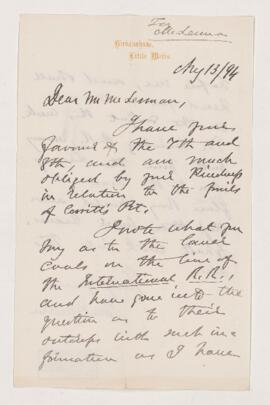 To
McLennan
Birkenshaw,
Little Metis.
Aug 13/94
Dear Mr McLennan,
I have your
favours of the 7th and
8th, and am much
obliged by your kindness
in relation to the
of
I note what you
say as to the
Coals on the line of
the International R.R.,
and have gone into the
question as to their
outcrops with such in=
formation as I have